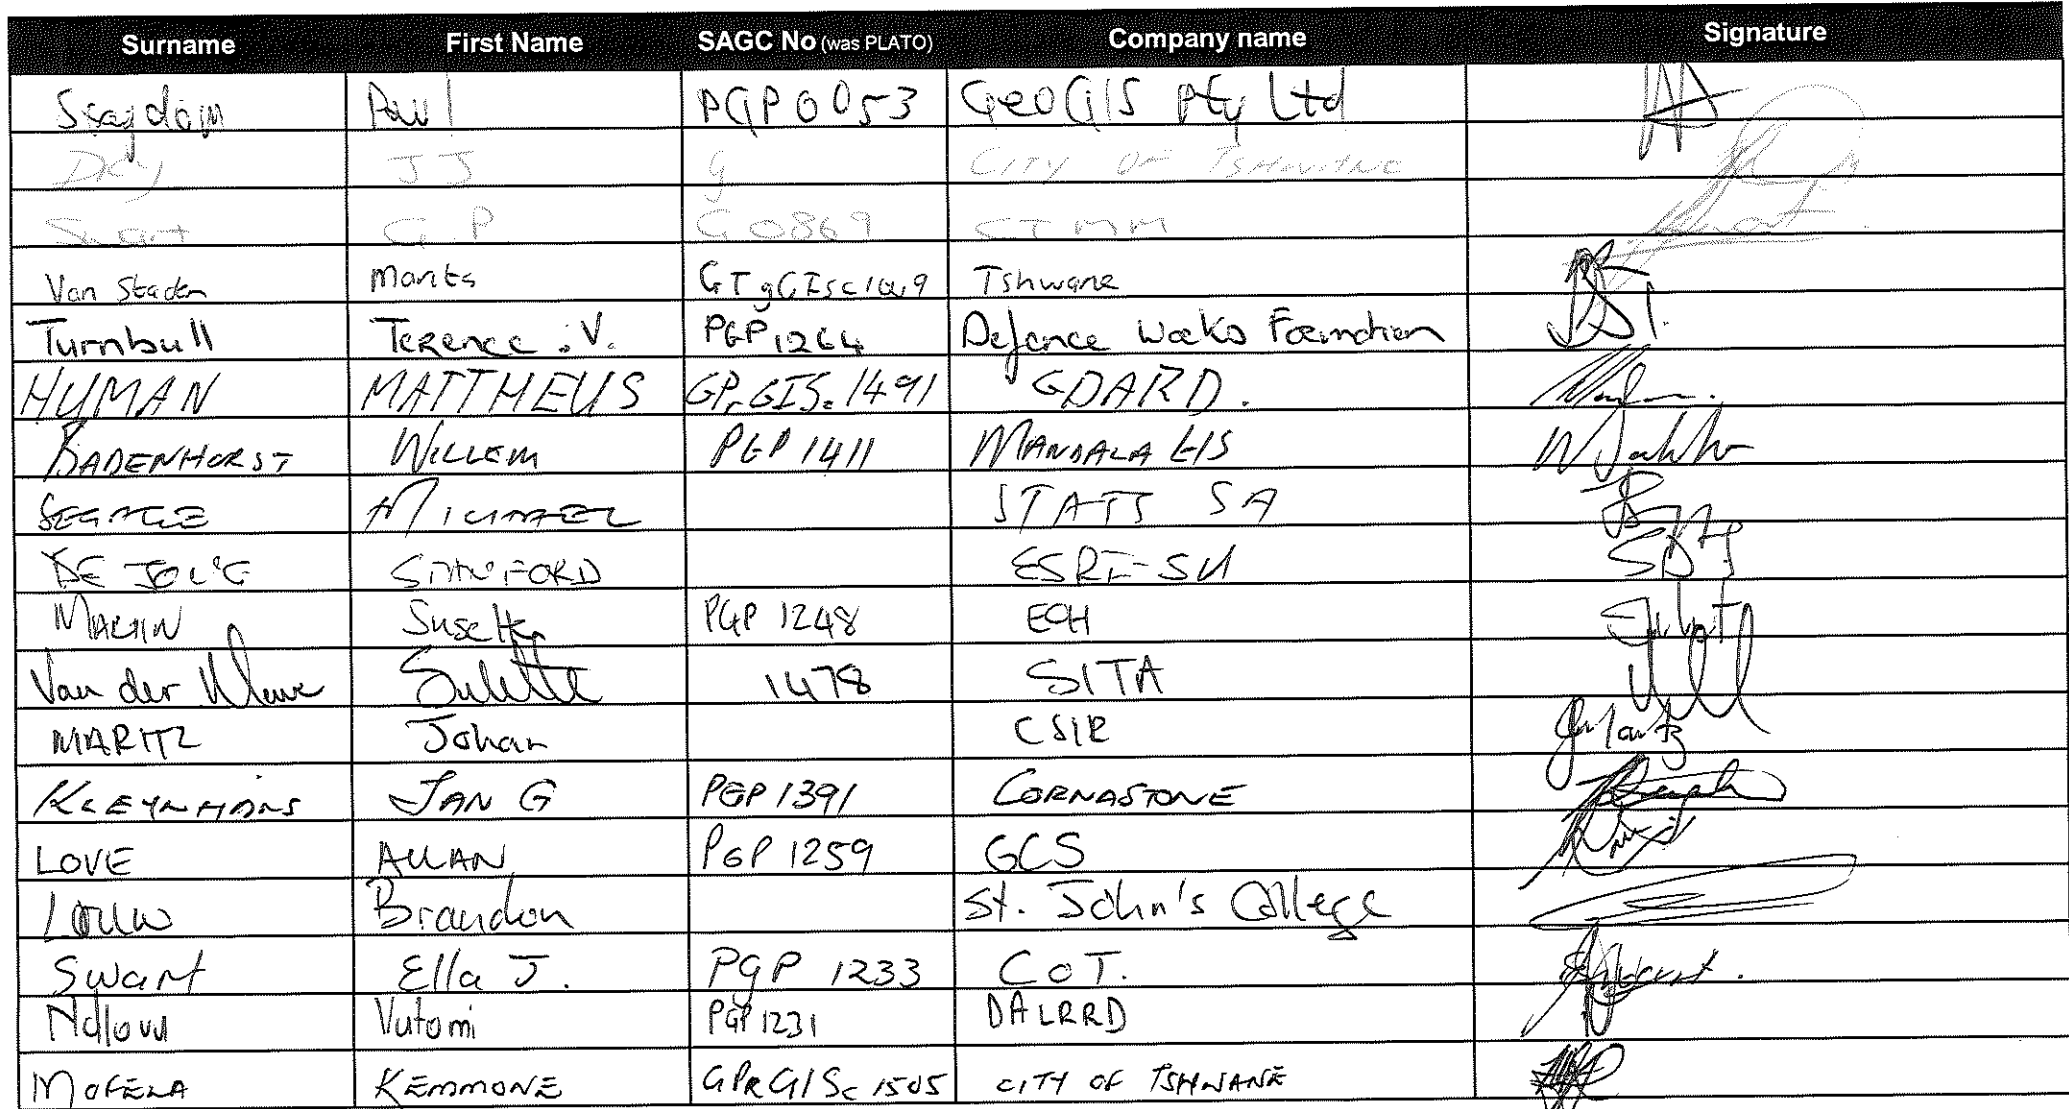 Surname First Name SAGC No (was PLATO) Company name Signature
Paul PGP0053 GeoGIS Pty Ltd
JJ G CITY OF TSHWANE
Swart G.P G0869 CTMM
Van Staden Tshwane
Turnbull Terence .V. PGP1264 Defence
HUMAN MATTHEUS GPrGISc1491 GDARD.
BADENHORST WILLEM PGP 1411 MANDALA GIS
MICHAEL STATS SA
SANFORD
PGP 1248
Van der Sulette 1478 SITA
MARITZ Johan CSIR
KLEYNHANS JAN G PGP 1391 CORNASTONE
LOVE ALLAN PGP 1259 GCS
Louw Brandon St. John's College
Swart Ella J. PGP 1233 CoT.
Ndlovu Vutomi PGP1231 DALRRD
MOFELA KEMMONE GPRGISc 1505 CITY OF TSHWANE